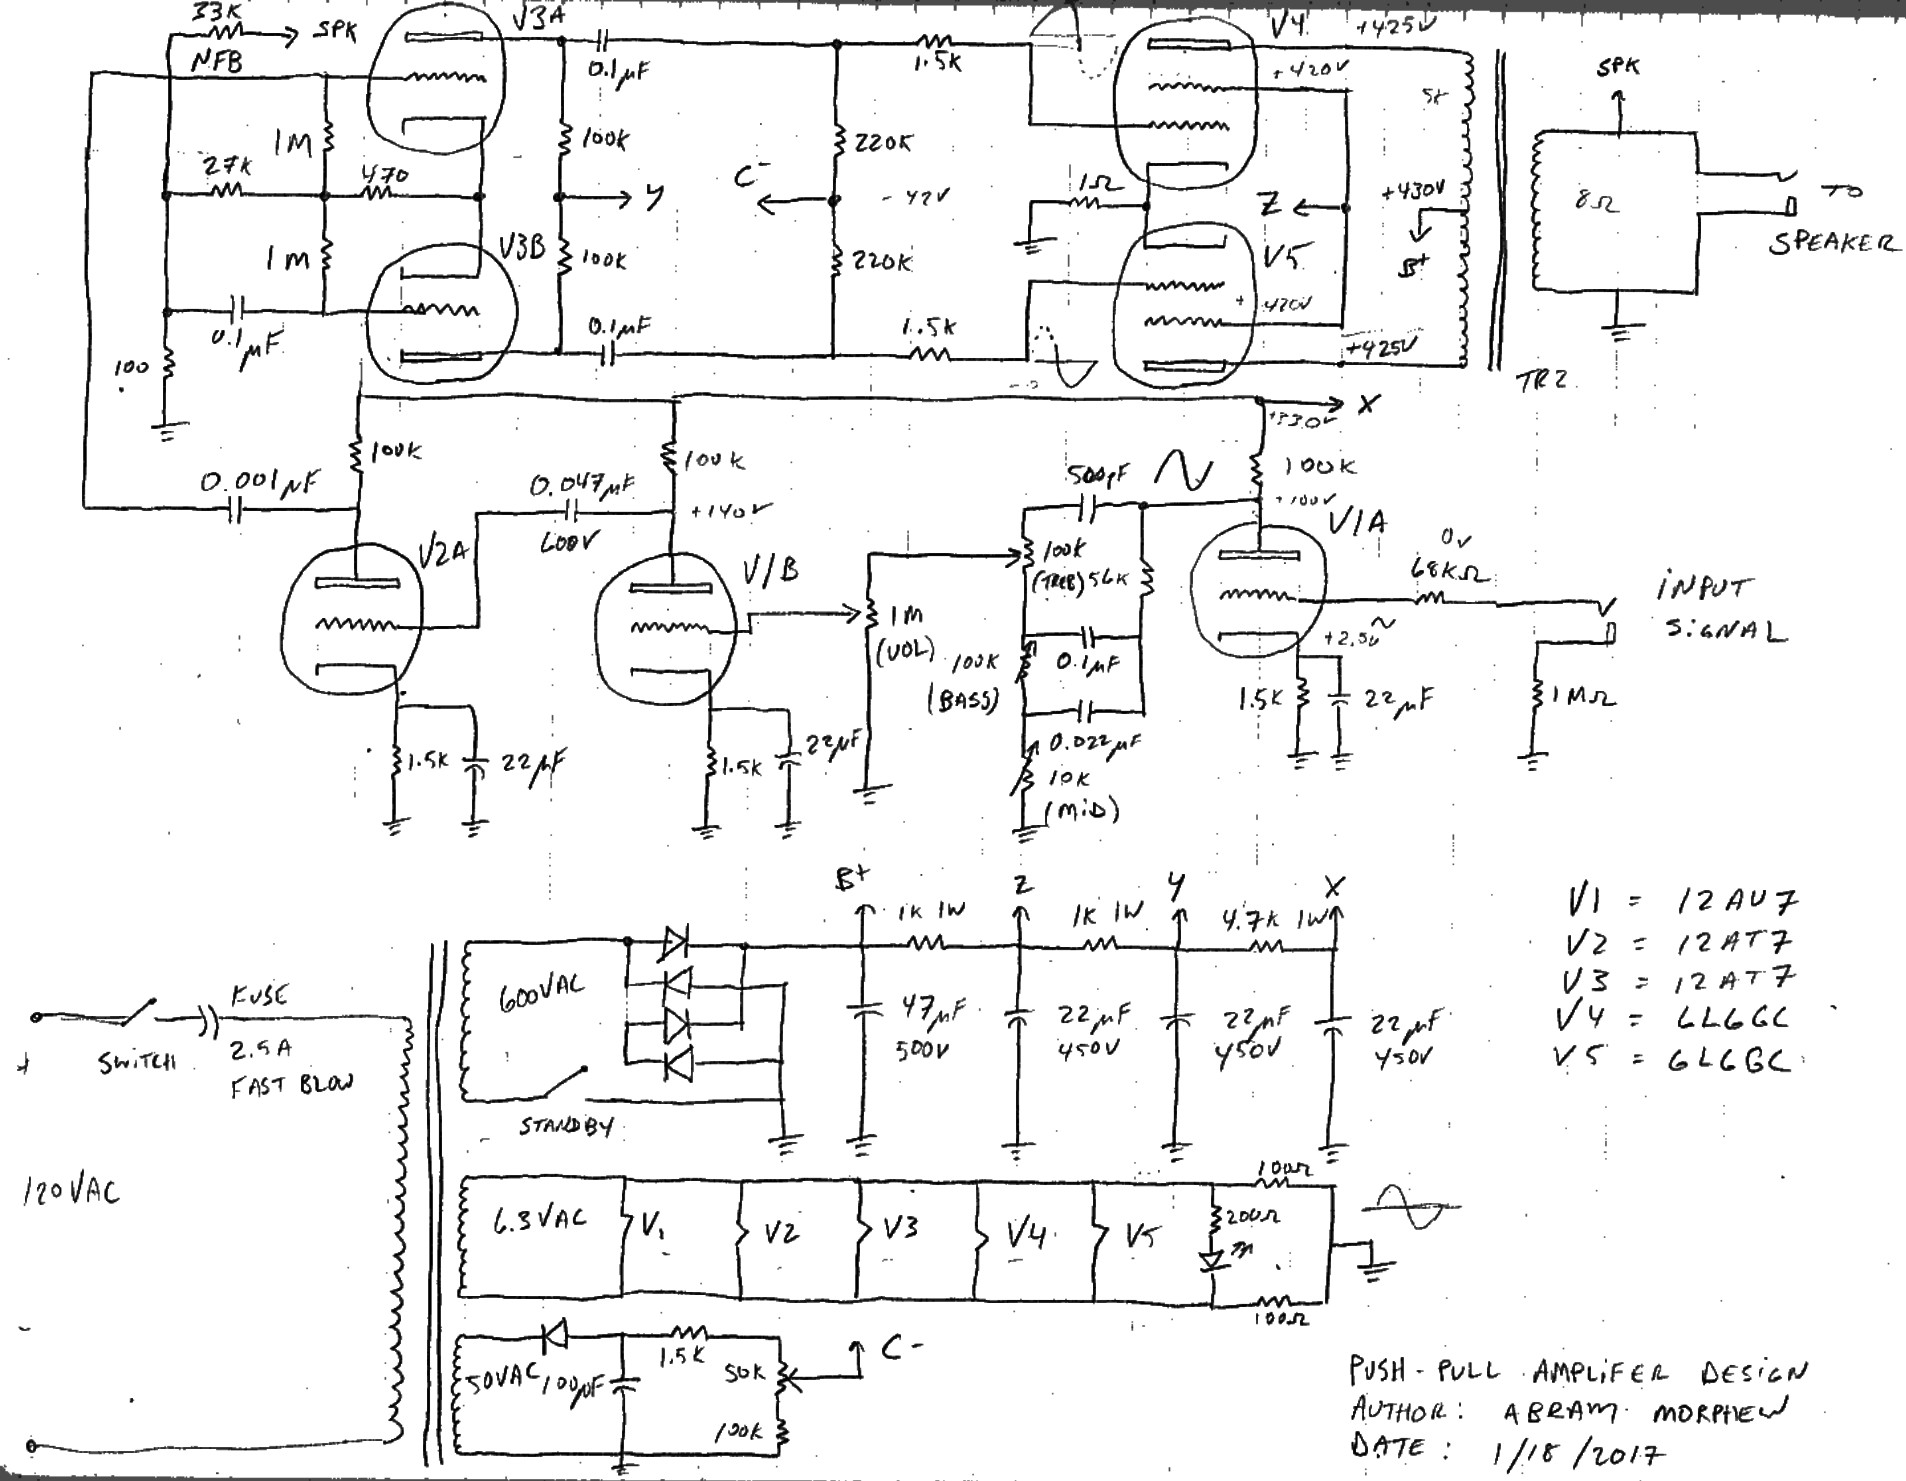 33K
SPK
V3A
V4
+425V
NFB
0.1µF
1.5K
+420V
5K
SPK
1M
100K
220K
27K
470
C-
1Ω
+430V
Y
-42V
Z
8Ω
TO
SPEAKER
1M
V3B
100K
220K
V5
B+
0.1µF
0.1µF
1.5K
+420V
+425V
100
TR2
X
+330V
100K
100K
500pF
100K
0.001µF
0.047µF
+140V
+100V
V1A
600V
V2A
V1B
100K
(TREB) 56K
0V
68KΩ
INPUT
SIGNAL
+2.5V
1M
(VOL)
100K
(BASS)
0.1µF
1.5K
22µF
1MΩ
1.5K
22µF
1.5K
22µF
0.022µF
10K
(MID)
B+
Z
Y
X
1K 1W
1K 1W
4.7K 1W
V1 = 12AU7
V2 = 12AT7
V3 = 12AT7
V4 = 6L6GC
V5 = 6L6GC
600VAC
FUSE
2.5A
FAST BLOW
SWITCH
47µF
500V
22µF
450V
22µF
450V
22µF
450V
STANDBY
120VAC
6.3VAC
V1
V2
V3
V4
V5
100Ω
200Ω
100Ω
50VAC
100µF
1.5K
50K
C-
100K
PUSH-PULL AMPLIFER DESIGN
AUTHOR: ABRAM MORPHEW
DATE: 1/18/2017